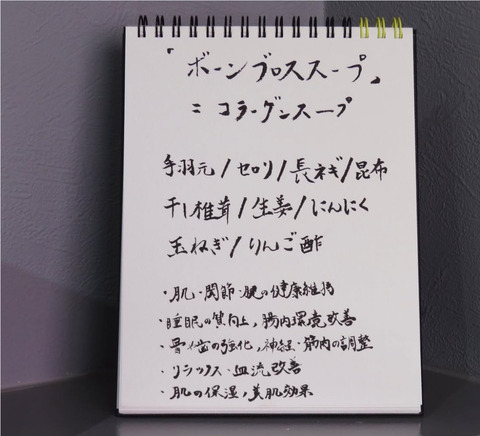 「ボーンブロススープ」
= コラーゲンスープ
手羽元/セロリ/長ネギ/昆布
干し椎茸/生姜/にんにく
玉ねぎ/りんご酢
・肌・関節・腸の健康維持
・睡眠の質向上,腸内環境改善
・骨や歯の強化,神経・筋肉の調整
・リラックス・血流改善
・肌の保湿,美肌効果